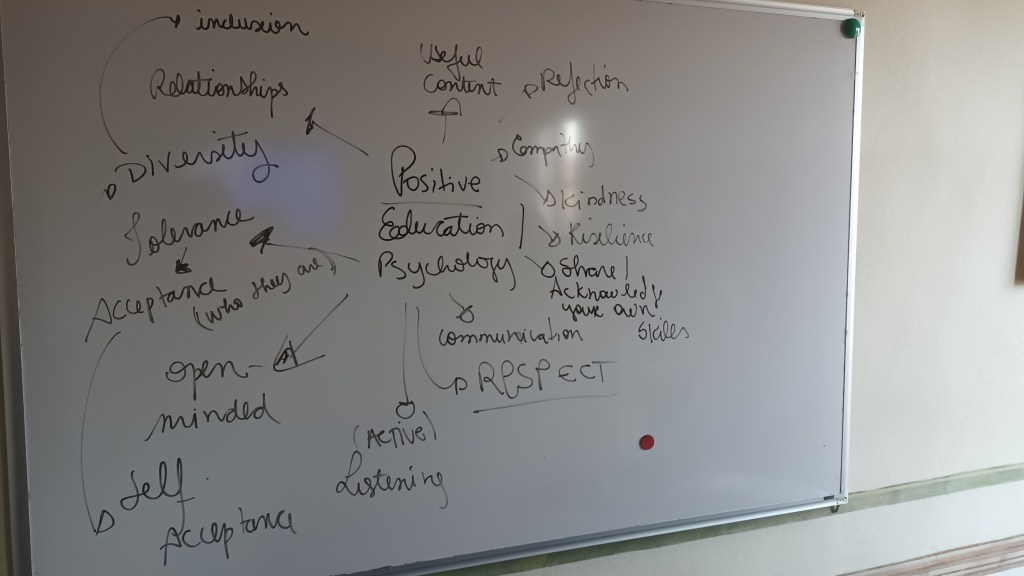 inclusion
Relationships
Diversity
Tolerance
Acceptance
(who they are)
open-
minded
Self
Acceptance
Useful
Content
Positive
Education
Psychology
Reflection
Kindness
Risilience
Share /
Acknowledge
your own
Skiles
communication
RESPECT
(ACTIVE)
Listening